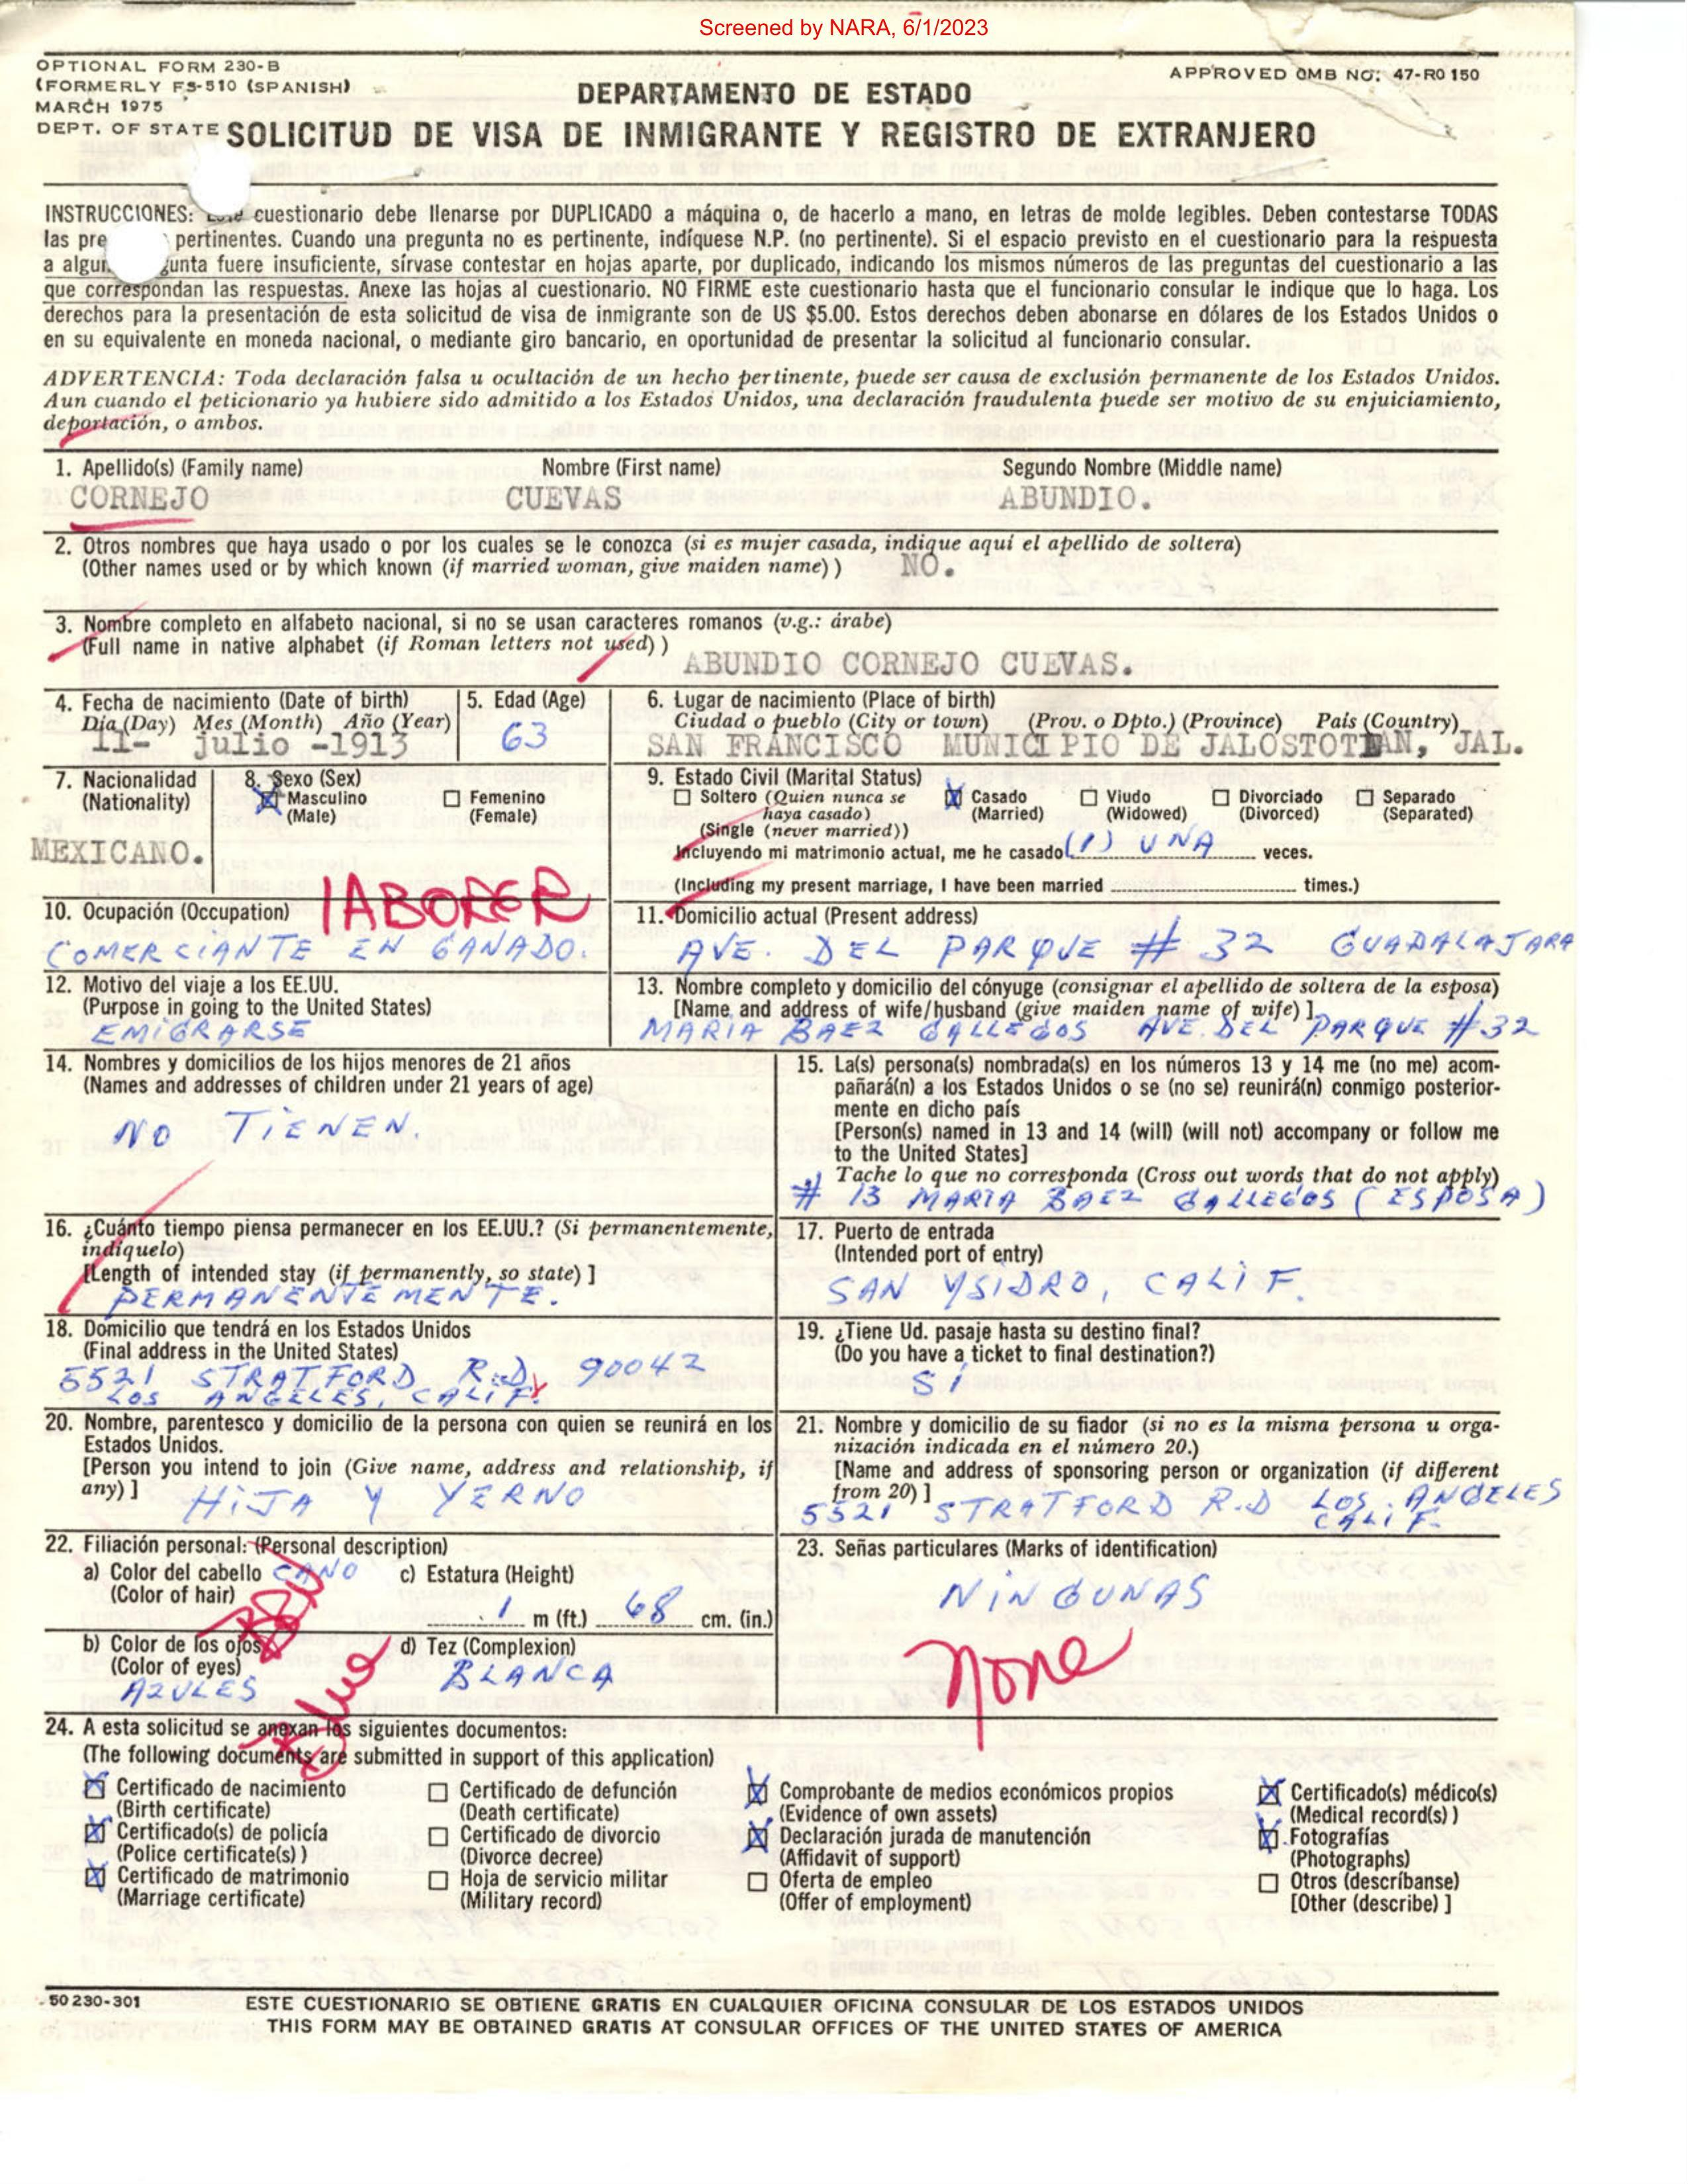 Screened by NARA, 6/1/2023
OPTIONAL FORM 230-B
(FORMERLY FS-510 (SPANISH)
MARCH 1975
DEPT. OF STATE
APPROVED OMB NO: 47-R0 150
DEPARTAMENTO DE ESTADO
SOLICITUD DE VISA DE INMIGRANTE Y REGISTRO DE EXTRANJERO
INSTRUCCIONES: Este cuestionario debe llenarse por DUPLICADO a máquina o, de hacerlo a mano, en letras de molde legibles. Deben contestarse TODAS
las pre pertinentes. Cuando una pregunta no es pertinente, indíquese N.P. (no pertinente). Si el espacio previsto en el cuestionario para la respuesta
a algun gunta fuere insuficiente, sírvase contestar en hojas aparte, por duplicado, indicando los mismos números de las preguntas del cuestionario a las
que correspondan las respuestas. Anexe las hojas al cuestionario. NO FIRME este cuestionario hasta que el funcionario consular le indique que lo haga. Los
derechos para la presentación de esta solicitud de visa de inmigrante son de US $5.00. Estos derechos deben abonarse en dólares de los Estados Unidos o
en su equivalente en moneda nacional, o mediante giro bancario, en oportunidad de presentar la solicitud al funcionario consular.
ADVERTENCIA: Toda declaración falsa u ocultación de un hecho pertinente, puede ser causa de exclusión permanente de los Estados Unidos.
Aun cuando el peticionario ya hubiere sido admitido a los Estados Unidos, una declaración fraudulenta puede ser motivo de su enjuiciamiento,
deportación, o ambos.
1. Apellido(s) (Family name) Nombre (First name) Segundo Nombre (Middle name)
CORNEJO CUEVAS ABUNDIO.
2. Otros nombres que haya usado o por los cuales se le conozca (si es mujer casada, indique aquí el apellido de soltera)
(Other names used or by which known (if married woman, give maiden name) ) NO.
3. Nombre completo en alfabeto nacional, si no se usan caracteres romanos (v.g.: árabe)
(Full name in native alphabet (if Roman letters not used) )
ABUNDIO CORNEJO CUEVAS.
4. Fecha de nacimiento (Date of birth)
Día (Day) Mes (Month) Año (Year)
11- julio -1913
5. Edad (Age)
63
6. Lugar de nacimiento (Place of birth)
Ciudad o pueblo (City or town) (Prov. o Dpto.) (Province) País (Country)
SAN FRANCISCO MUNICIPIO DE JALOSTOTLAN, JAL.
7. Nacionalidad
(Nationality)
MEXICANO.
8. Sexo (Sex)
Masculino
(Male)
Femenino
(Female)
9. Estado Civil (Marital Status)
Soltero (Quien nunca se
haya casado)
(Single (never married))
Casado
(Married)
Viudo
(Widowed)
Divorciado
(Divorced)
Separado
(Separated)
Incluyendo mi matrimonio actual, me he casado (1) UNA veces.
(Including my present marriage, I have been married times.)
10. Ocupación (Occupation)
LABORER
COMERCIANTE EN GANADO.
11. Domicilio actual (Present address)
AVE. DEL PARQUE # 32 GUADALAJARA
12. Motivo del viaje a los EE.UU.
(Purpose in going to the United States)
EMIGRARSE
13. Nombre completo y domicilio del cónyuge (consignar el apellido de soltera de la esposa)
[Name and address of wife/husband (give maiden name of wife) ]
MARIA BAEZ GALLEGOS AVE. DEL PARQUE #32
14. Nombres y domicilios de los hijos menores de 21 años
(Names and addresses of children under 21 years of age)
NO TIENEN.
15. La(s) persona(s) nombrada(s) en los números 13 y 14 me (no me) acom-
pañará(n) a los Estados Unidos o se (no se) reunirá(n) conmigo posterior-
mente en dicho país
[Person(s) named in 13 and 14 (will) (will not) accompany or follow me
to the United States]
Tache lo que no corresponda (Cross out words that do not apply)
# 13 MARIA BAEZ GALLEGOS (ESPOSA)
16. ¿Cuánto tiempo piensa permanecer en los EE.UU.? (Si permanentemente,
indíquelo)
[Length of intended stay (if permanently, so state) ]
PERMANENTEMENTE.
17. Puerto de entrada
(Intended port of entry)
SAN YSIDRO, CALIF.
18. Domicilio que tendrá en los Estados Unidos
(Final address in the United States)
5521 STRATFORD R.D. 90042
LOS ANGELES, CALIF.
19. ¿Tiene Ud. pasaje hasta su destino final?
(Do you have a ticket to final destination?)
SI
20. Nombre, parentesco y domicilio de la persona con quien se reunirá en los
Estados Unidos.
[Person you intend to join (Give name, address and relationship, if
any) ]
HIJA Y YERNO
21. Nombre y domicilio de su fiador (si no es la misma persona u orga-
nización indicada en el número 20.)
[Name and address of sponsoring person or organization (if different
from 20) ]
5521 STRATFORD R.D LOS ANGELES
CALIF.
22. Filiación personal: (Personal description)
a) Color del cabello CANO
(Color of hair)
c) Estatura (Height)
1 m (ft.) 68 cm. (in.)
b) Color de los ojos
(Color of eyes)
AZULES
Blue
d) Tez (Complexion)
BLANCA
23. Señas particulares (Marks of identification)
NINGUNAS
None
24. A esta solicitud se anexan los siguientes documentos:
(The following documents are submitted in support of this application)
Certificado de nacimiento
(Birth certificate)
Certificado(s) de policía
(Police certificate(s) )
Certificado de matrimonio
(Marriage certificate)
Certificado de defunción
(Death certificate)
Certificado de divorcio
(Divorce decree)
Hoja de servicio militar
(Military record)
Comprobante de medios económicos propios
(Evidence of own assets)
Declaración jurada de manutención
(Affidavit of support)
Oferta de empleo
(Offer of employment)
Certificado(s) médico(s)
(Medical record(s) )
Fotografías
(Photographs)
Otros (descríbanse)
[Other (describe) ]
50 230-301
ESTE CUESTIONARIO SE OBTIENE GRATIS EN CUALQUIER OFICINA CONSULAR DE LOS ESTADOS UNIDOS
THIS FORM MAY BE OBTAINED GRATIS AT CONSULAR OFFICES OF THE UNITED STATES OF AMERICA